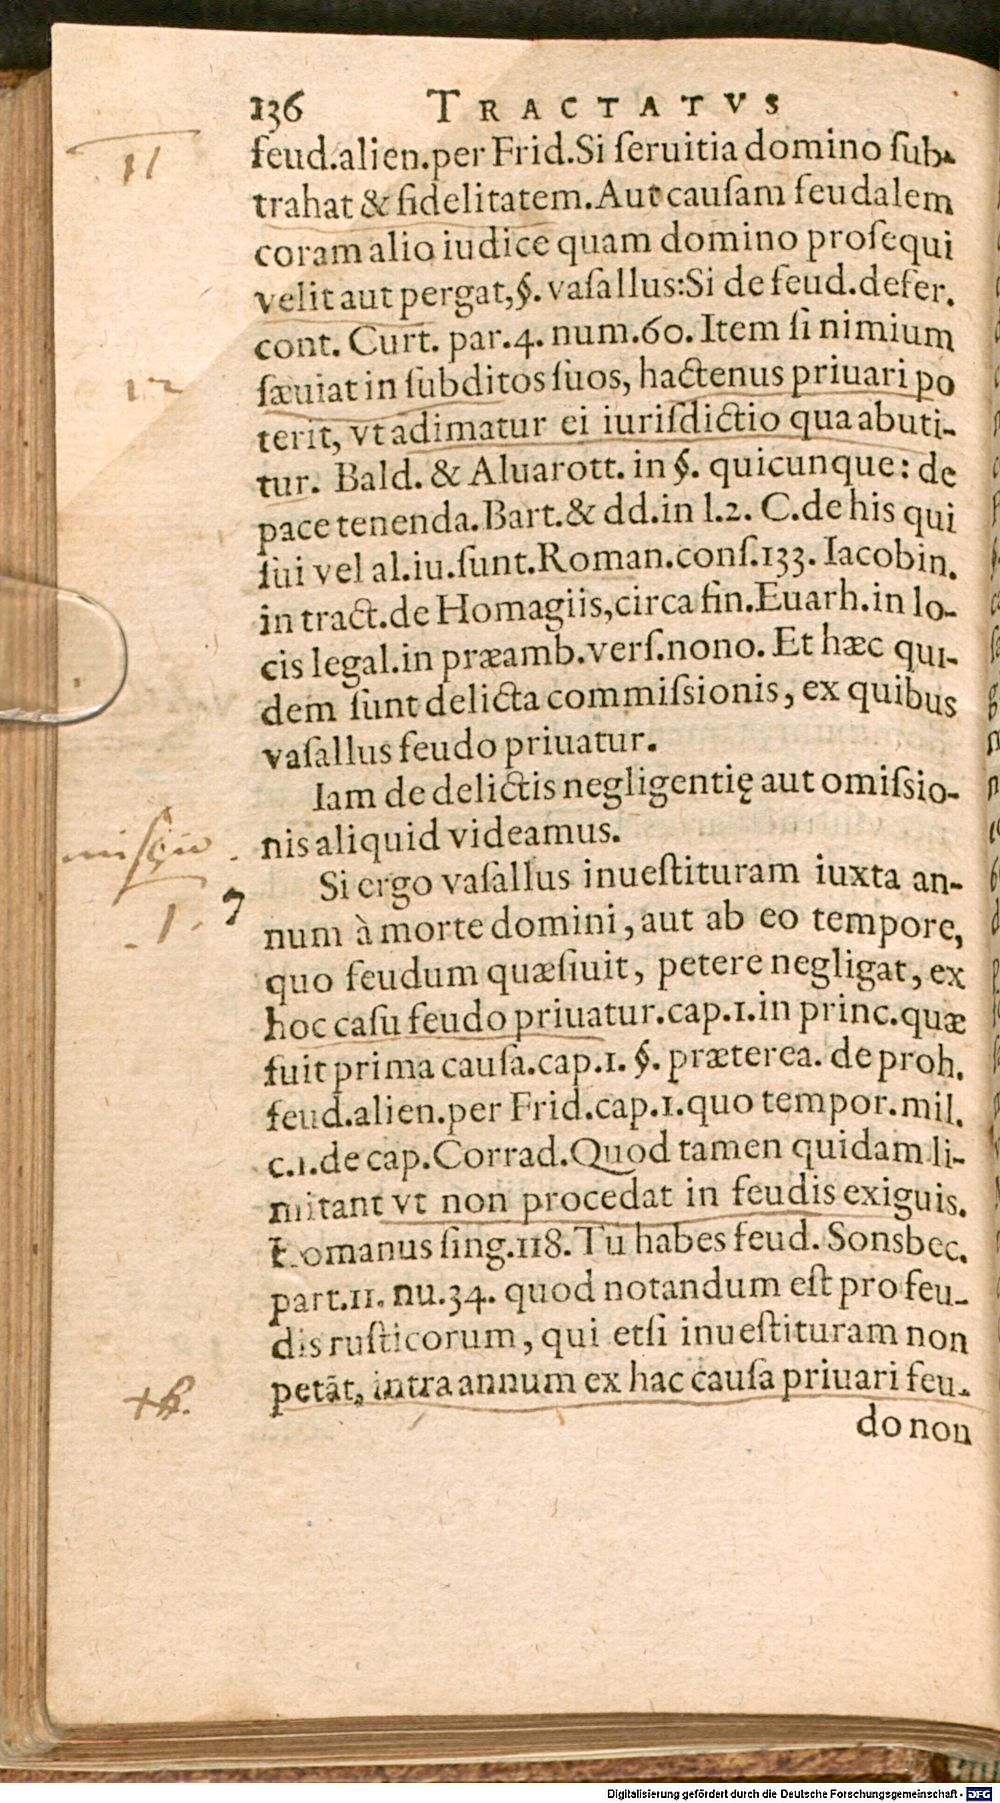 136 TRACTATVS
feud.alien.per Frid.Si ſeruitia domino ſub-
11
trahat & fidelitatem.Aut cauſam feudalem
coram alio iudice quam domino proſequi
velit aut pergat,§. vaſallus:Si de feud.defer.
cont. Curt. par.4. num.60. Item ſi nimium
12
ſæuiat in ſubditos ſuos, hactenus priuari po
terit, vt adimatur ei iuriſdictio qua abuti-
tur. Bald. & Aluarott. in §. quicunque: de
pace tenenda.Bart.& dd.in l.2. C.de his qui
ſui vel al.iu.ſunt.Roman.conſ.133. Iacobin.
in tract.de Homagiis,circa fin.Euarh.in lo-
cis legal.in præamb.verſ.nono. Et hæc qui-
dem ſunt delicta commiſsionis, ex quibus
vaſallus feudo priuatur.
Iam de delictis negligentię aut omiſsio-
nis aliquid videamus.
Si ergo vaſallus inueſtituram iuxta an-
1.
num à morte domini, aut ab eo tempore,
quo feudum quæſiuit, petere negligat, ex
hoc caſu feudo priuatur.cap.1.in princ.quæ
fuit prima cauſa.cap.1. §. præterea. de proh.
feud.alien.per Frid.cap.1.quo tempor.mil.
c.1.de cap.Corrad.Quod tamen quidam li-
mitant vt non procedat in feudis exiguis.
Romanus ſing.118.Tu habes feud. Sonsbec.
part.11. nu.34. quod notandum eſt pro feu-
dis ruſticorum, qui etſi inueſtituram non
petāt, intra annum ex hac cauſa priuari feu-
do non
Digitalisierung gefördert durch die Deutsche Forschungsgemeinschaft - DFG